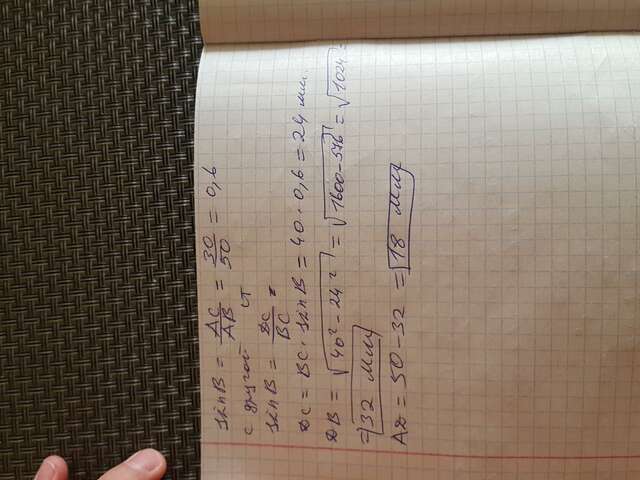 sinB = AC/AB = 30/50 = 0,6
с другой ст
sinB = DC/BC =
DC = BC · sinB = 40 · 0,6 = 24 мм.
DB = √40² - 24² = √1600 - 576 = √1024 =
= 32 мм
AD = 50 - 32 = 18 мм